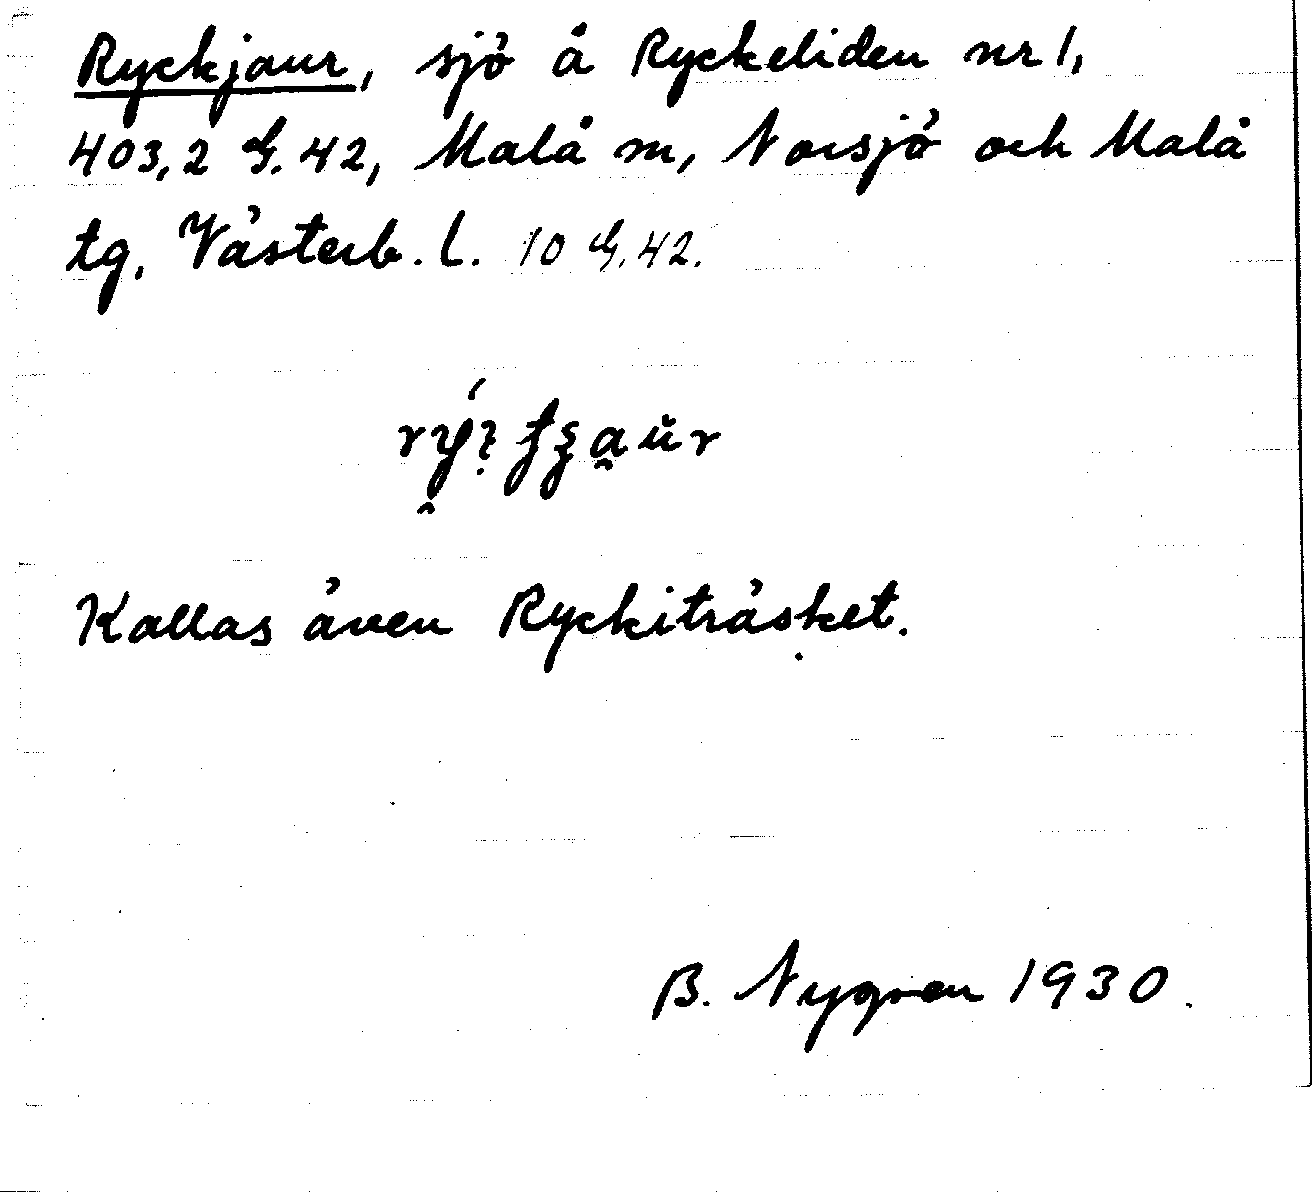 Ryckjaur, sjö å Ryckeliden nr 1,
403,2 G. 42, Malå m, Norsjö och Malå
tg, Västerb. l. 10 G. 42.
Kallas även Ryckiträsket.
B. Nygren 1930.